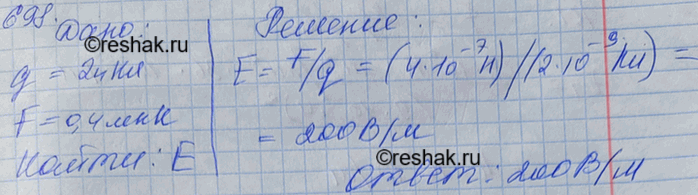 698. Дано:
©reshak.ru
q = 2нКл
F = 0,4мкН
Найти: E
Решение:
E = F/q = (4·10⁻⁷Н)/(2·10⁻⁹Кл) =
= 200В/м
©reshak.ru
Ответ: 200В/м